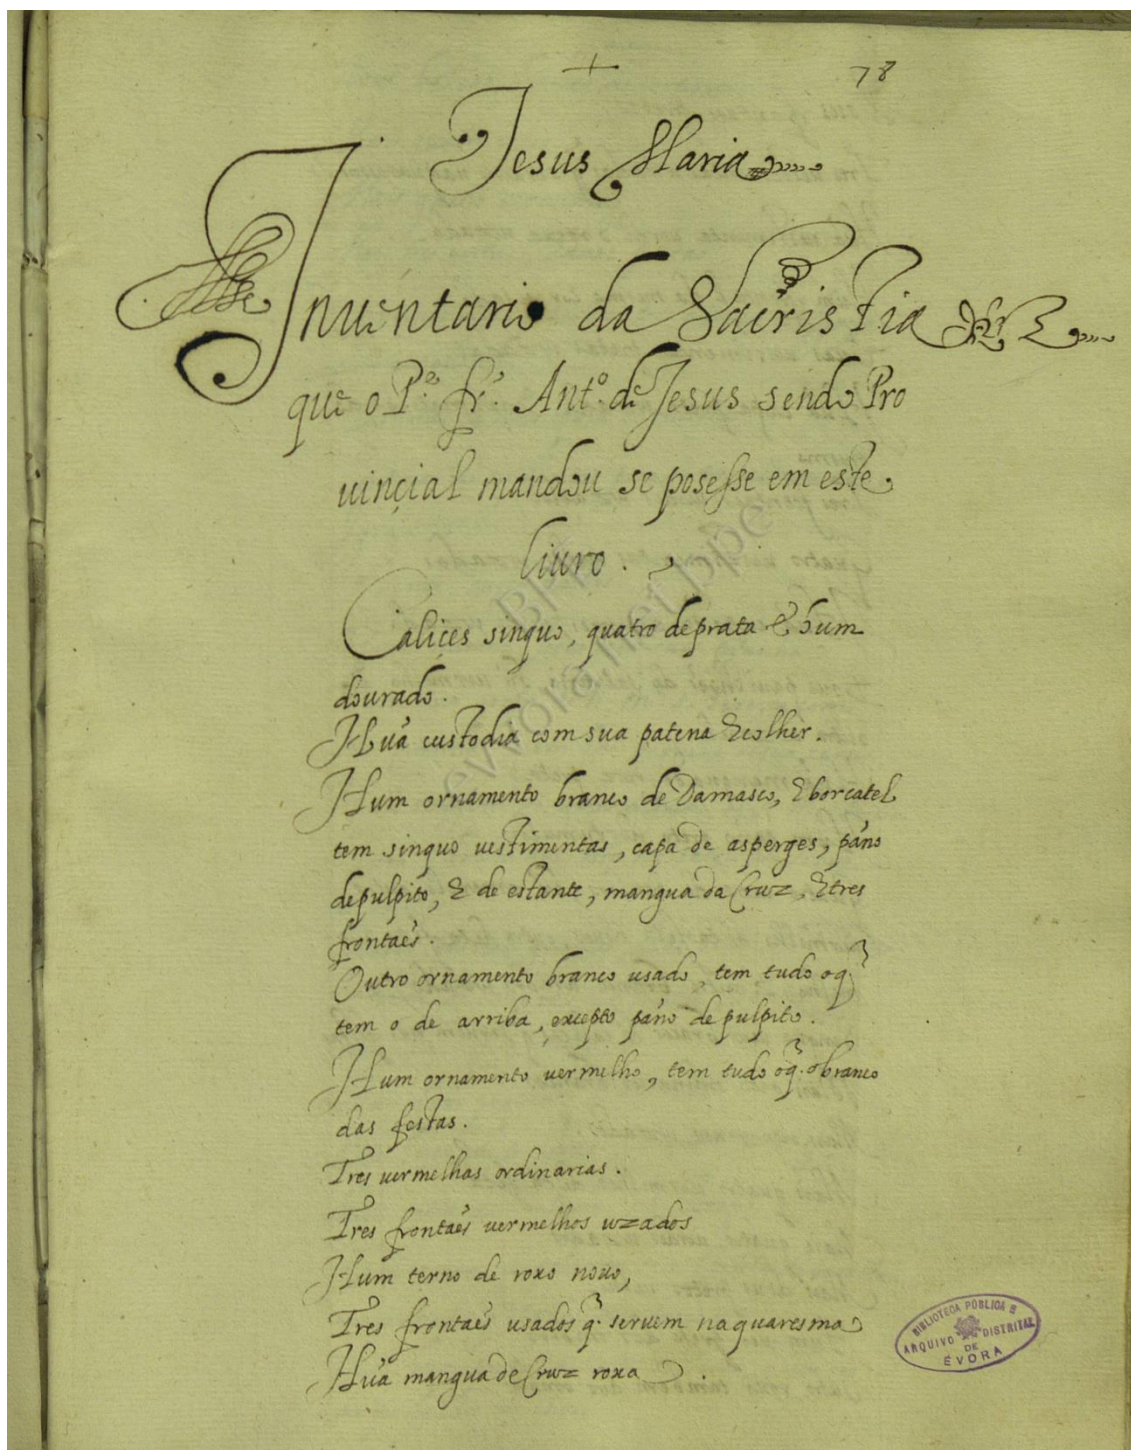 + 78
Jesus Maria
Inuentario da Sacristia
que o P.e fr. Ant.o de Jesus sendo Pro
uinçial mandou se posesse em este
liuro.
Calices sinquo, quatro de prata & hum
dourado.
Hũa custodia com sua patena & colher.
Hum ornamento branco de Damasco, & borcatel
tem sinquo uestimentas, capa de asperges, pãno
de pulpito, & de estante, mangua da Cruz, & tres
frontaes.
Outro ornamento branco usado, tem tudo o q̃
tem o de arriba, excepto pãno de pulpito.
Hum ornamento uermelho, tem tudo o q̃. o branco
das festas.
Tres uermelhas ordinarias.
Tres frontaes uermelhos uzados
Hum terno de roxo nouo,
Tres frontaes usados q̃. seruem na quaresma
Hũa mangua de Cruz roxa.
BIBLIOTECA PÚBLICA E
ARQUIVO DISTRITAL
DE
ÉVORA